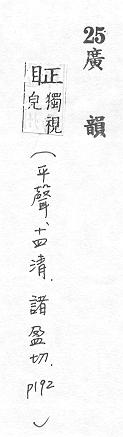 25廣韻
眐獨視皃
(平聲.十四清.諸盈切.p192)